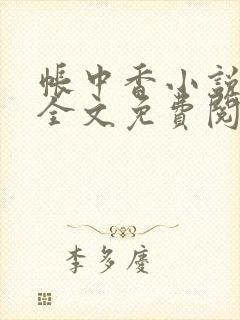 帳中香小說
全文免費閱
李多慶